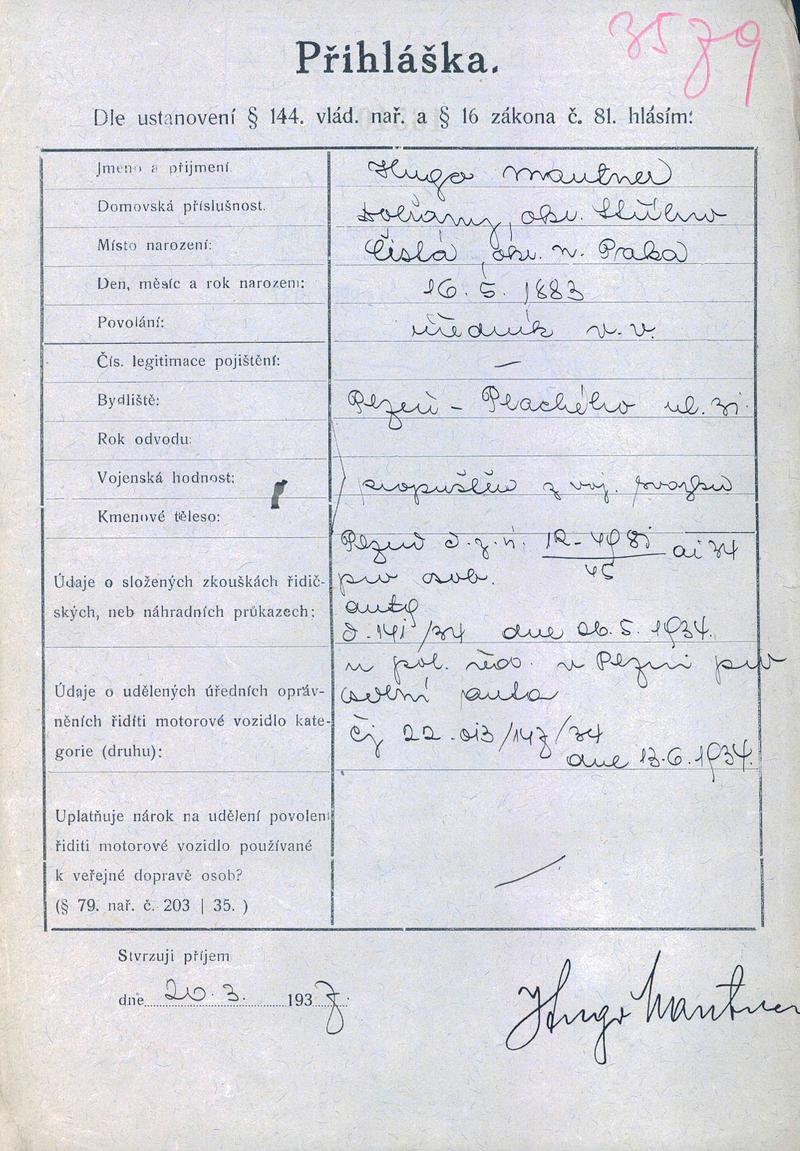 3579
Přihláška.
Dle ustanovení § 144. vlád. nař. a § 16 zákona č. 81. hlásím:
Jmeno a příjmení Hugo Mautner
Domovská příslušnost. okr.
Místo narození: Čistá, okr. N. Paka
Den, měsíc a rok narození: 16. 5. 1883
Povolání: úředník v. v.
Čís. legitimace pojištění: —
Bydliště: Plzeň - Plachého ul. 31.
Rok odvodu:
Vojenská hodnost: propuštěn z voj. svazku
Kmenové těleso:
Plzeň č. z. n. ai 34
Údaje o složených zkouškách řidič- pro osob.
ských, neb náhradních průkazech: auty
č. 141/34 dne 26. 5. 1934.
u pol. řed. v Plzni pro
Údaje o udělených úředních opráv- osobní auta
něních říditi motorové vozidlo kate- čj 22.013/147/34
gorie (druhu): dne 13.6.1934.
Uplatňuje nárok na udělení povolení
říditi motorové vozidlo používané
k veřejné dopravě osob? —
(§ 79. nař. č. 203 | 35. )
Stvrzuji příjem
dne 20. 3. 1937.
Hugo Mautner